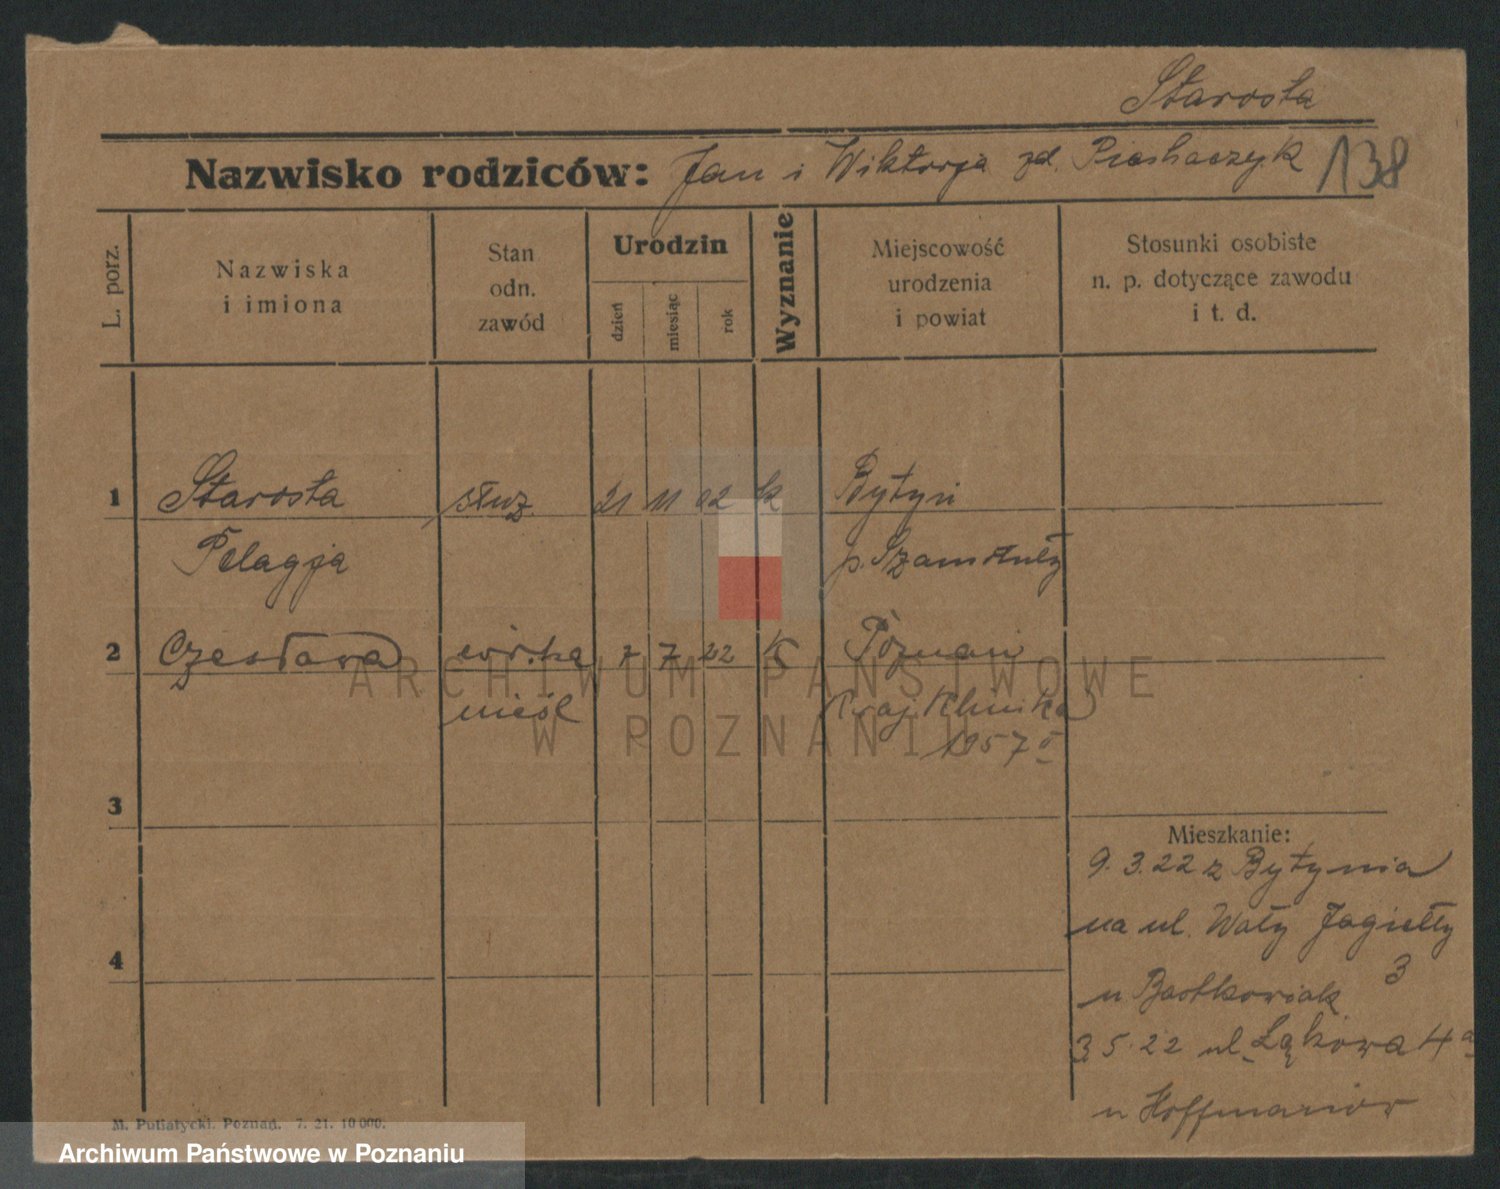 Starosta
Nazwisko rodziców: Jan i Wiktorja zd. 138
L. porz.
Nazwiska
i imiona
Stan
odn.
zawód
Urodzin
dzień
miesiąc
rok
Wyznanie
Miejscowość
urodzenia
i powiat
Stosunki osobiste
n. p. dotyczące zawodu
i t. d.
1 Starosta służ. 21 11 02 k Bytyń
Pelagja p. Szamotuły
2 Czesława córka 7 7 22 k Poznań
nieśl Kraj. Klinika
1957
3
4
Mieszkanie:
9. 3. 22 z Bytynia
na ul. Wały Jagiełły
3
u Bartkowiak
3. 5. 22 ul. Łąkowa 4a
u Hoffmanów
M. Putiatycki. Poznań. 7. 21. 10000.
ARCHIWUM PAŃSTWOWE
W POZNANIU
Archiwum Państwowe w Poznaniu